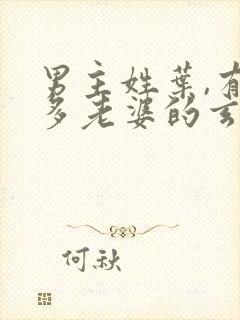 男主姓葉,有
多老婆的玄
何秋